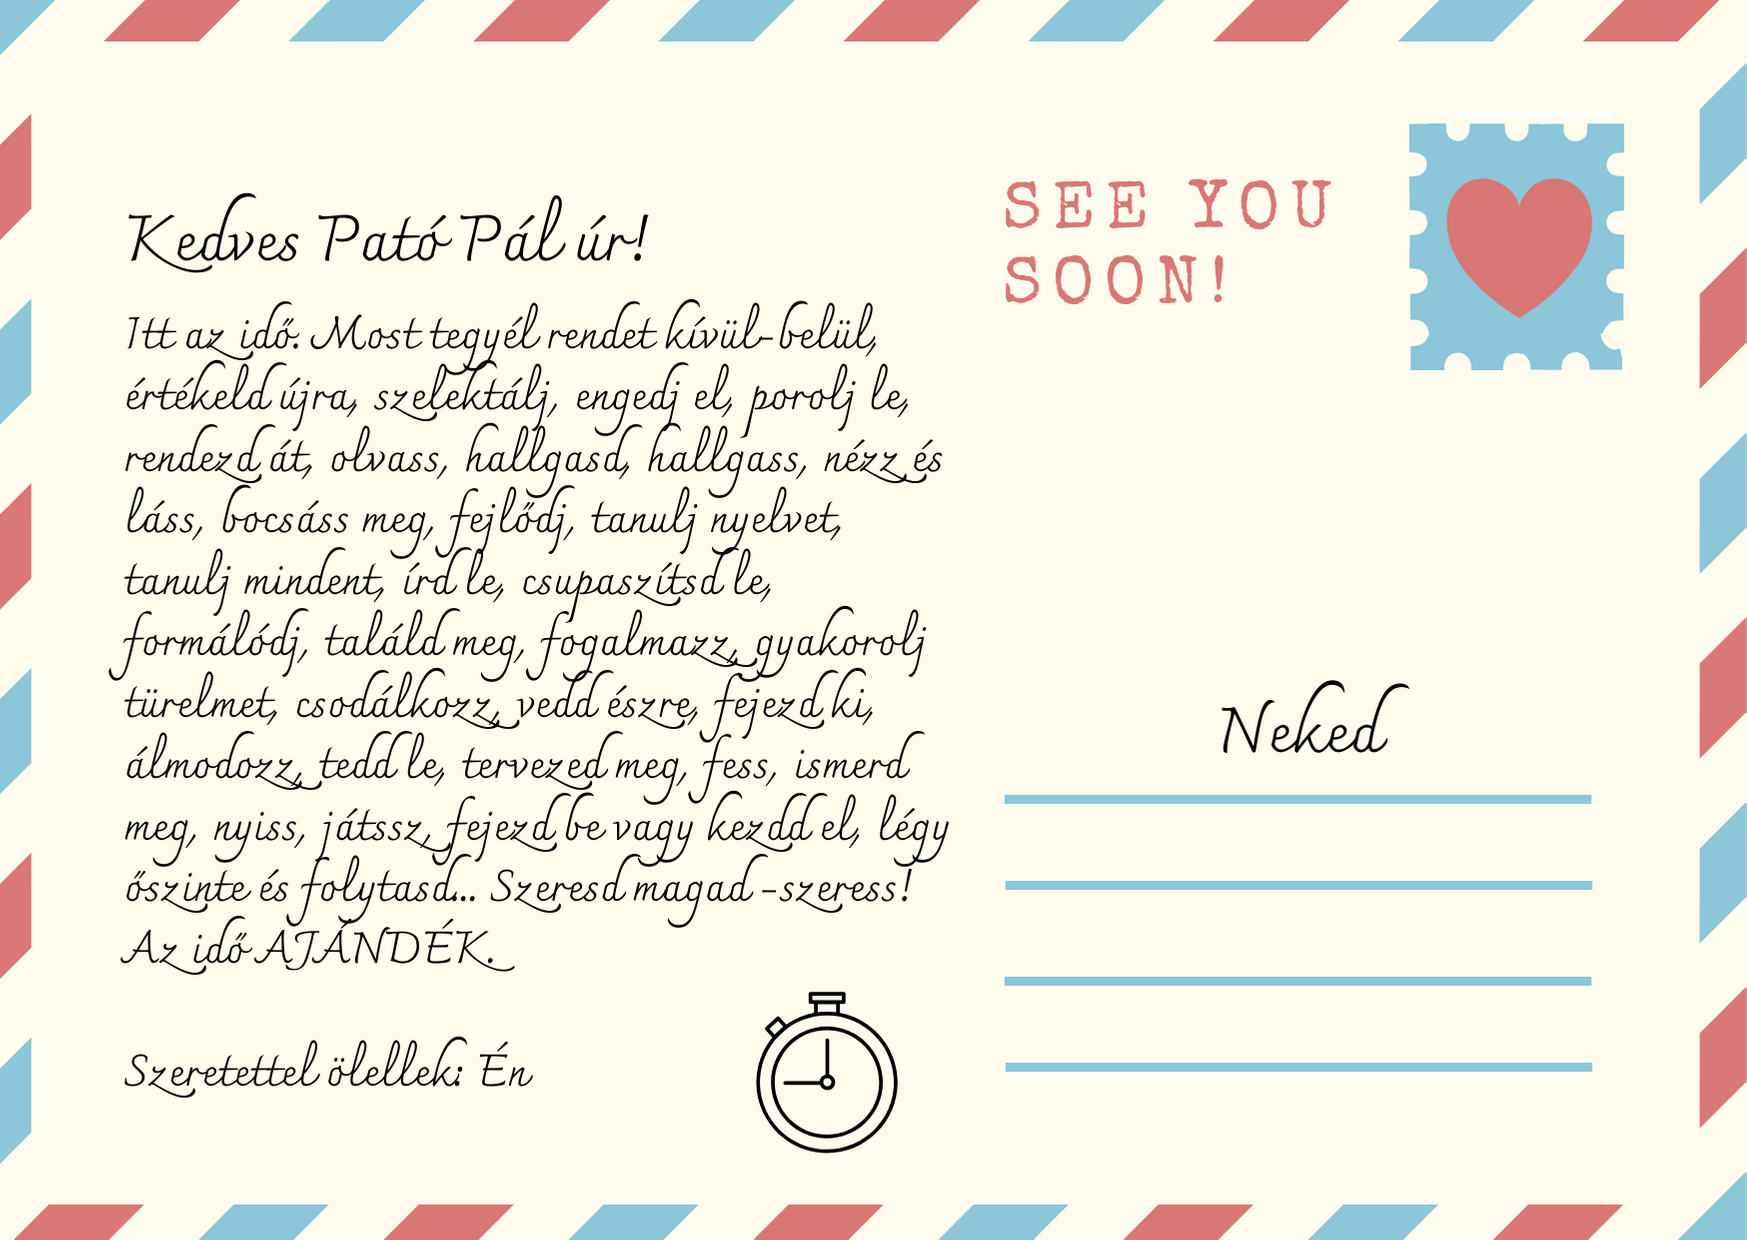 Kedves Pató Pál úr!
Itt az idő. Most tegyél rendet kívül-belül,
értékeld újra, szelektálj, engedj el, porolj le,
rendezd át, olvass, hallgasd, hallgass, nézz és
láss, bocsáss meg, fejlődj, tanulj nyelvet,
tanulj mindent, írd le, csupaszítsd le,
formálódj, találd meg, fogalmazz, gyakorolj
türelmet, csodálkozz, vedd észre, fejezd ki,
álmodozz, tedd le, tervezed meg, fess, ismerd
meg, nyiss, játssz, fejezd be vagy kezdd el, légy
őszinte és folytasd... Szeresd magad -szeress!
Az idő AJÁNDÉK.
Szeretettel ölellek: Én
SEE YOU
SOON!
Neked